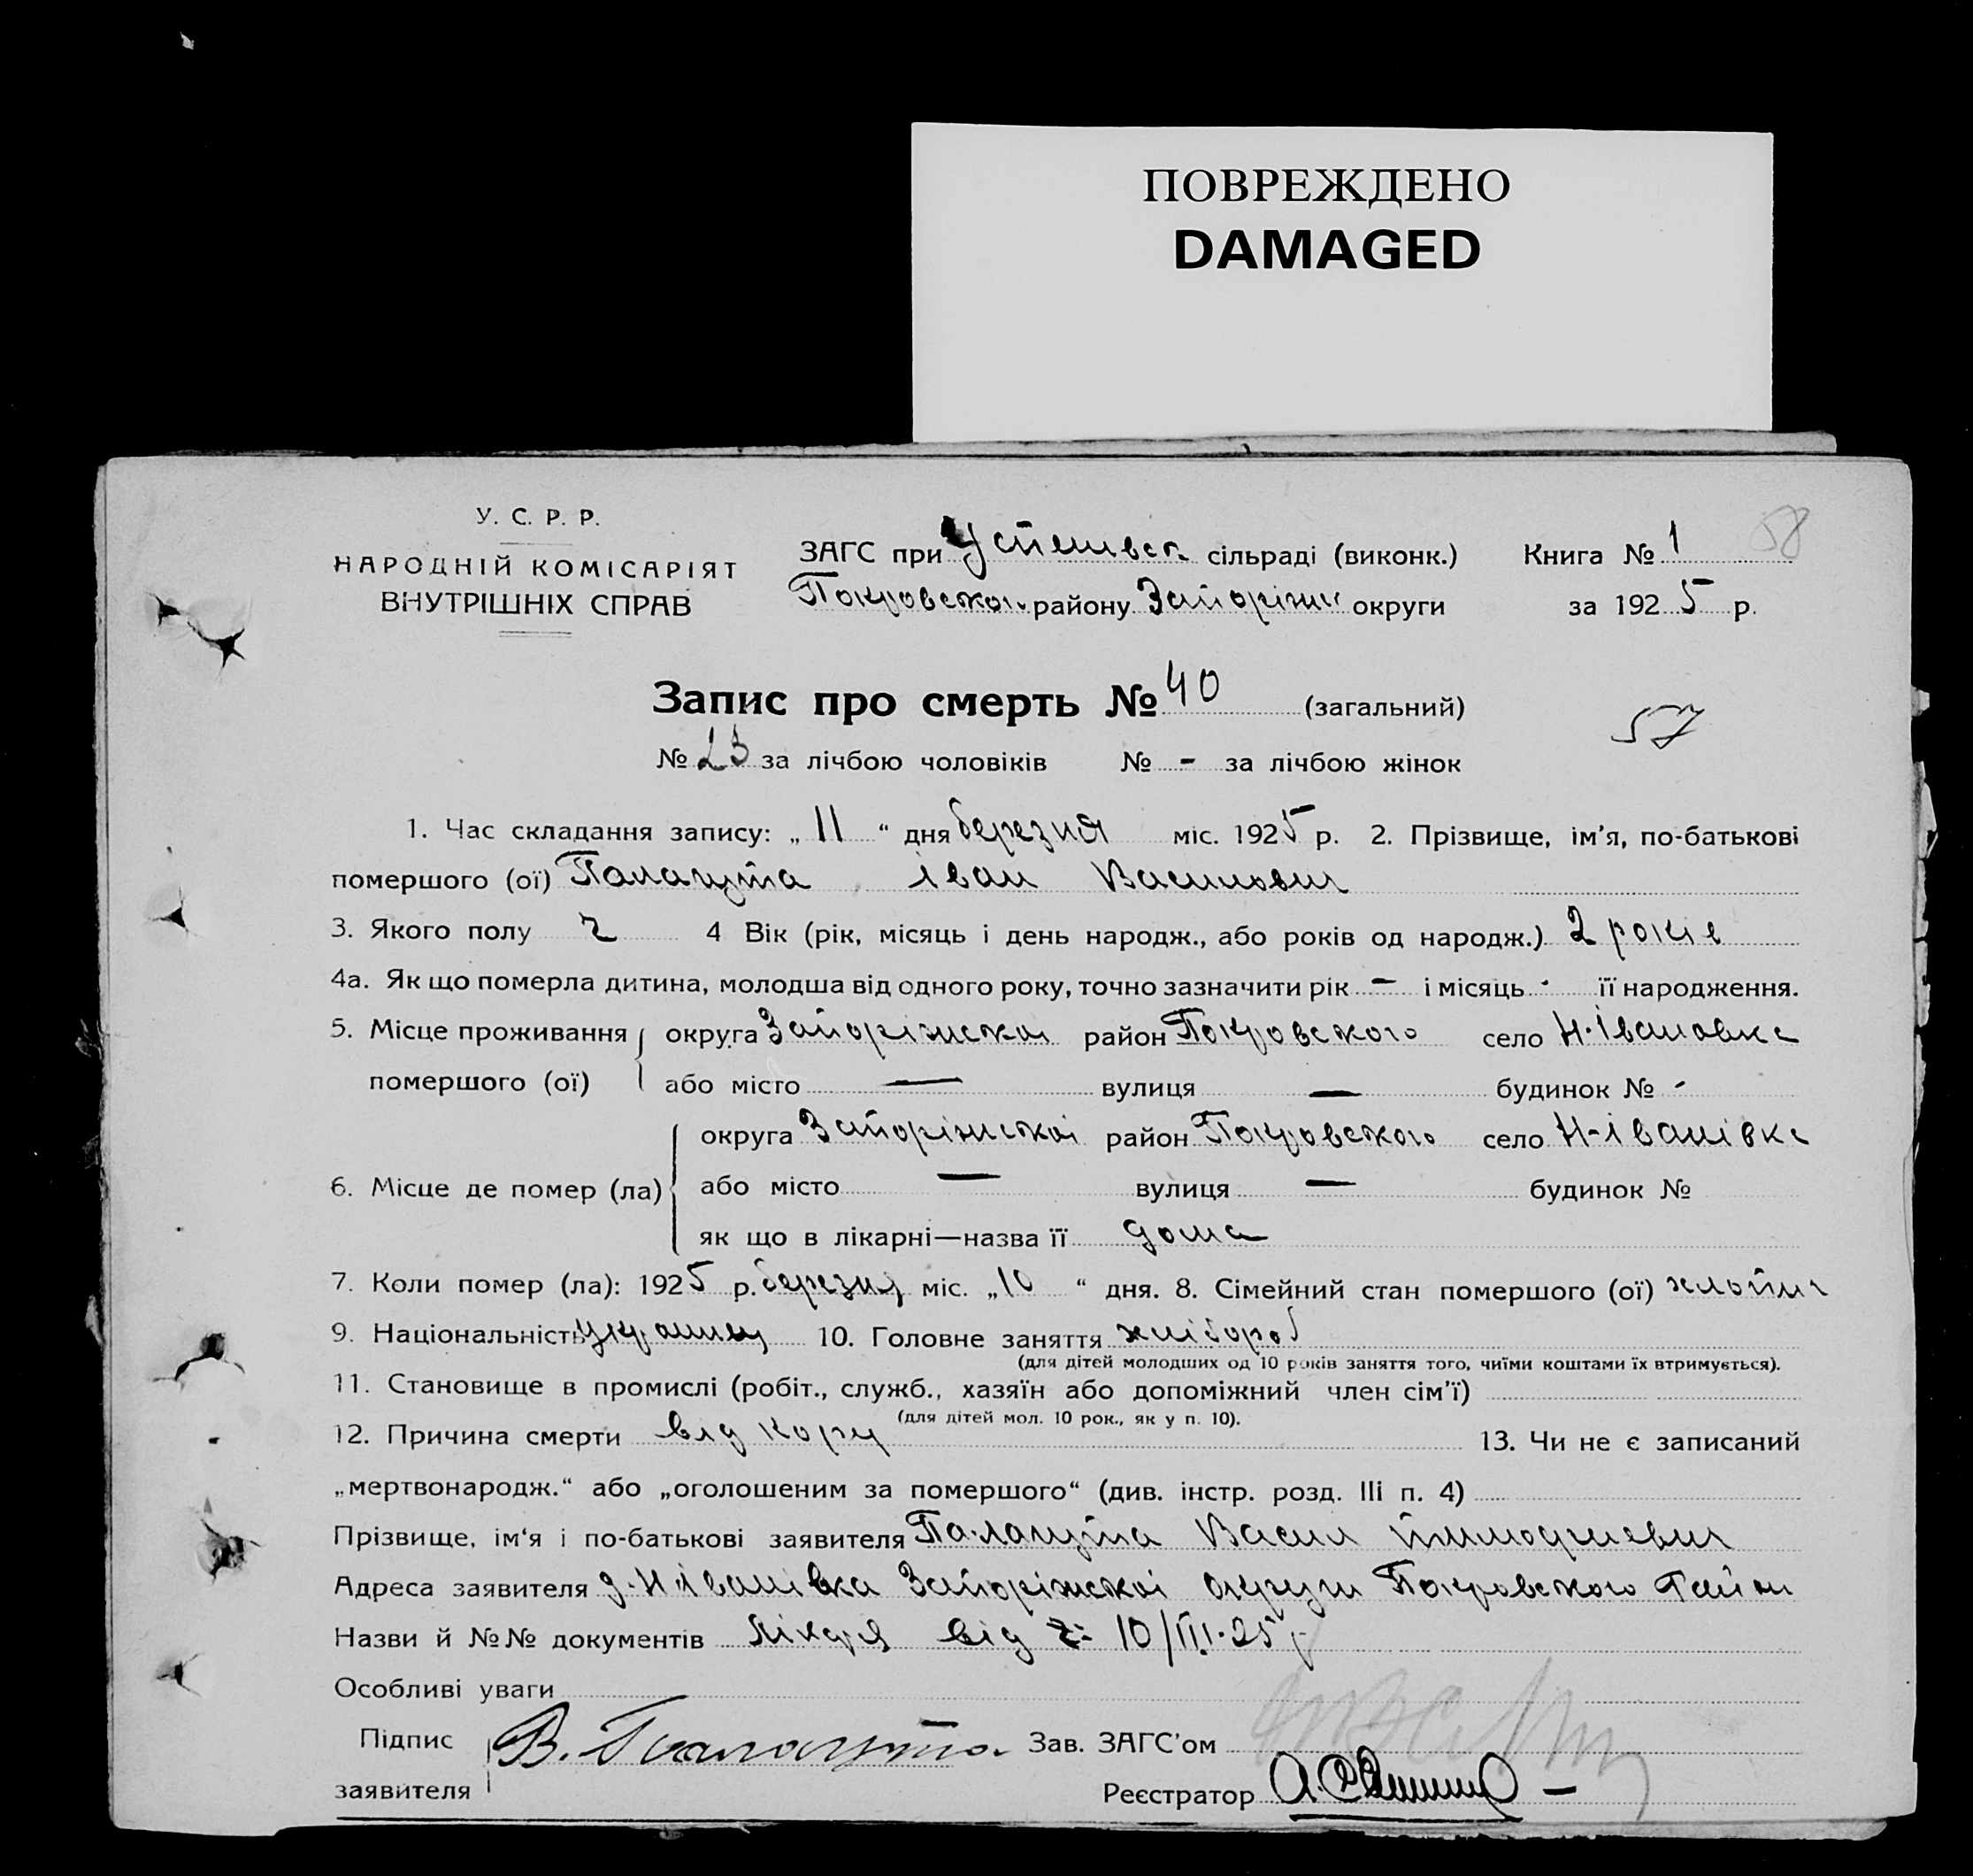 ПОВРЕЖДЕНО
DAMAGED
У. С. Р. Р.
НАРОДНІЙ КОМІСАРІЯТ
ВНУТРІШНІХ СПРАВ
ЗАГС при сільраді (виконк.)
Покровського району Запоріжж округи
Книга № 1 58
за 1925 р.
Запис про смерть № 40 (загальний)
57
№ 23 за лічбою чоловіків № - за лічбою жінок
1. Час складання запису: „ 11 “ дня березня міс. 1925 р. 2. Прізвище, ім’я, по-батькові
помершого (ої) Палагута Іван Василович
3. Якого полу ч 4 Вік (рік, місяць і день народж., або років од народж.) 2 років
4а. Як що померла дитина, молодша від одного року, точно зазначити рік - і місяць - її народження.
5. Місце проживання округа Запоріжскоі район Покровського село Н-Івановка
помершого (ої) або місто — вулиця — будинок № -
округа Запоріжскоі район Покровського село Н-Іванівка
6. Місце де помер (ла) або місто — вулиця — будинок №
як що в лікарні—назва її дома
7. Коли помер (ла): 1925 р. березня міс. „ 10 “ дня. 8. Сімейний стан помершого (ої) хлопич
9. Національність українец 10. Головне заняття хлібороб
(для дітей молодших од 10 років заняття того, чиїми коштами їх втримується).
11. Становище в промислі (робіт., служб., хазяїн або допоміжний член сім’ї)
(для дітей мол. 10 рок., як у п. 10).
12. Причина смерти від кору 13. Чи не є записаний
„мертвонародж.“ або „оголошеним за помершого“ (див. інстр. розд. III п. 4)
Прізвище, ім‘я і по-батькові заявителя Палагута Васил Тимофиевич
Адреса заявителя д. Н-Іванівка Запоріжскоі округи Покровського Район
Назви й №№ документів Лікаря від 10/III-25 р
Особливі уваги
Підпис В. Палагута Зав. ЗАГС’ом
заявителя Реєстратор